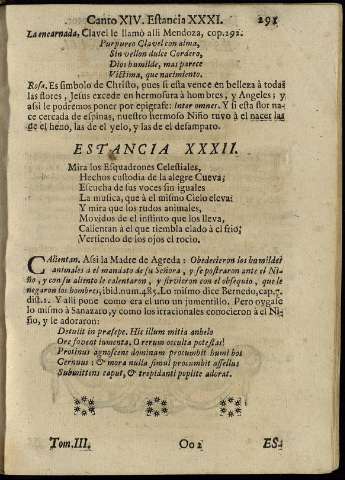 Canto XIV. Estancia XXXI. 291
La encarnada. Clavel le llamò alli Mendoza, cop. 292.
Purpureo Clavel con alma,
Sin vellon dulce Cordero,
Dios humilde, mas parece
Victima, que nacimiento.
Rosa. Es simbolo de Christo, pues si esta vence en belleza à todas
las flores, Jesus excede en hermosura à hombres, y Angeles; y
assi le podrèmos poner por epigrafe: Inter omnes. Y si esta flor na-
ce cercada de espinas, nuestro hermoso Niño tuvo à el nacer las
de el heno, las de el yelo, y las de desamparo.
ESTANCIA XXXII.
Mira los Esquadrones Celestiales,
Hechos custodia de la alegre Cueva;
Escucha de sus voces sin iguales
La musica, que à el mismo Cielo eleva:
Y mira que los rudos animales,
Movidos de el instinto que los lleva,
Calientan à el que tiembla elado à el frio;
Vertiendo de los ojos el rocio.
CAlientan. Assi la Madre de Agreda: Obedecieron los humildes
animales a el mandato de su Señora, y se postraron ante el Ni-
ño, y con su aliento le calentaron, y sirvieron con el obsequio, que le
negaron los hombres, ibid. num. 485. Lo mismo dice Bernedo, cap. 7.
dist. 1. Y alli pone como era el uno un jumentillo. Pero oygase
lo mismo à Sanazaro, y como los irracionales conocieron à el Ni-
ño, y le adoraron:
Detuit in præsepe. Hic illum mitia anhelo
Ore fovent iumenta. O rerum occulta potestas!
Protinus agnoscens dominum procumbit humi bos
Cernuus: & mora nulla simul procumbit assellus
Submittens caput, & trepidanti poplite adorat.
Tom. III. Oo 2 ES-